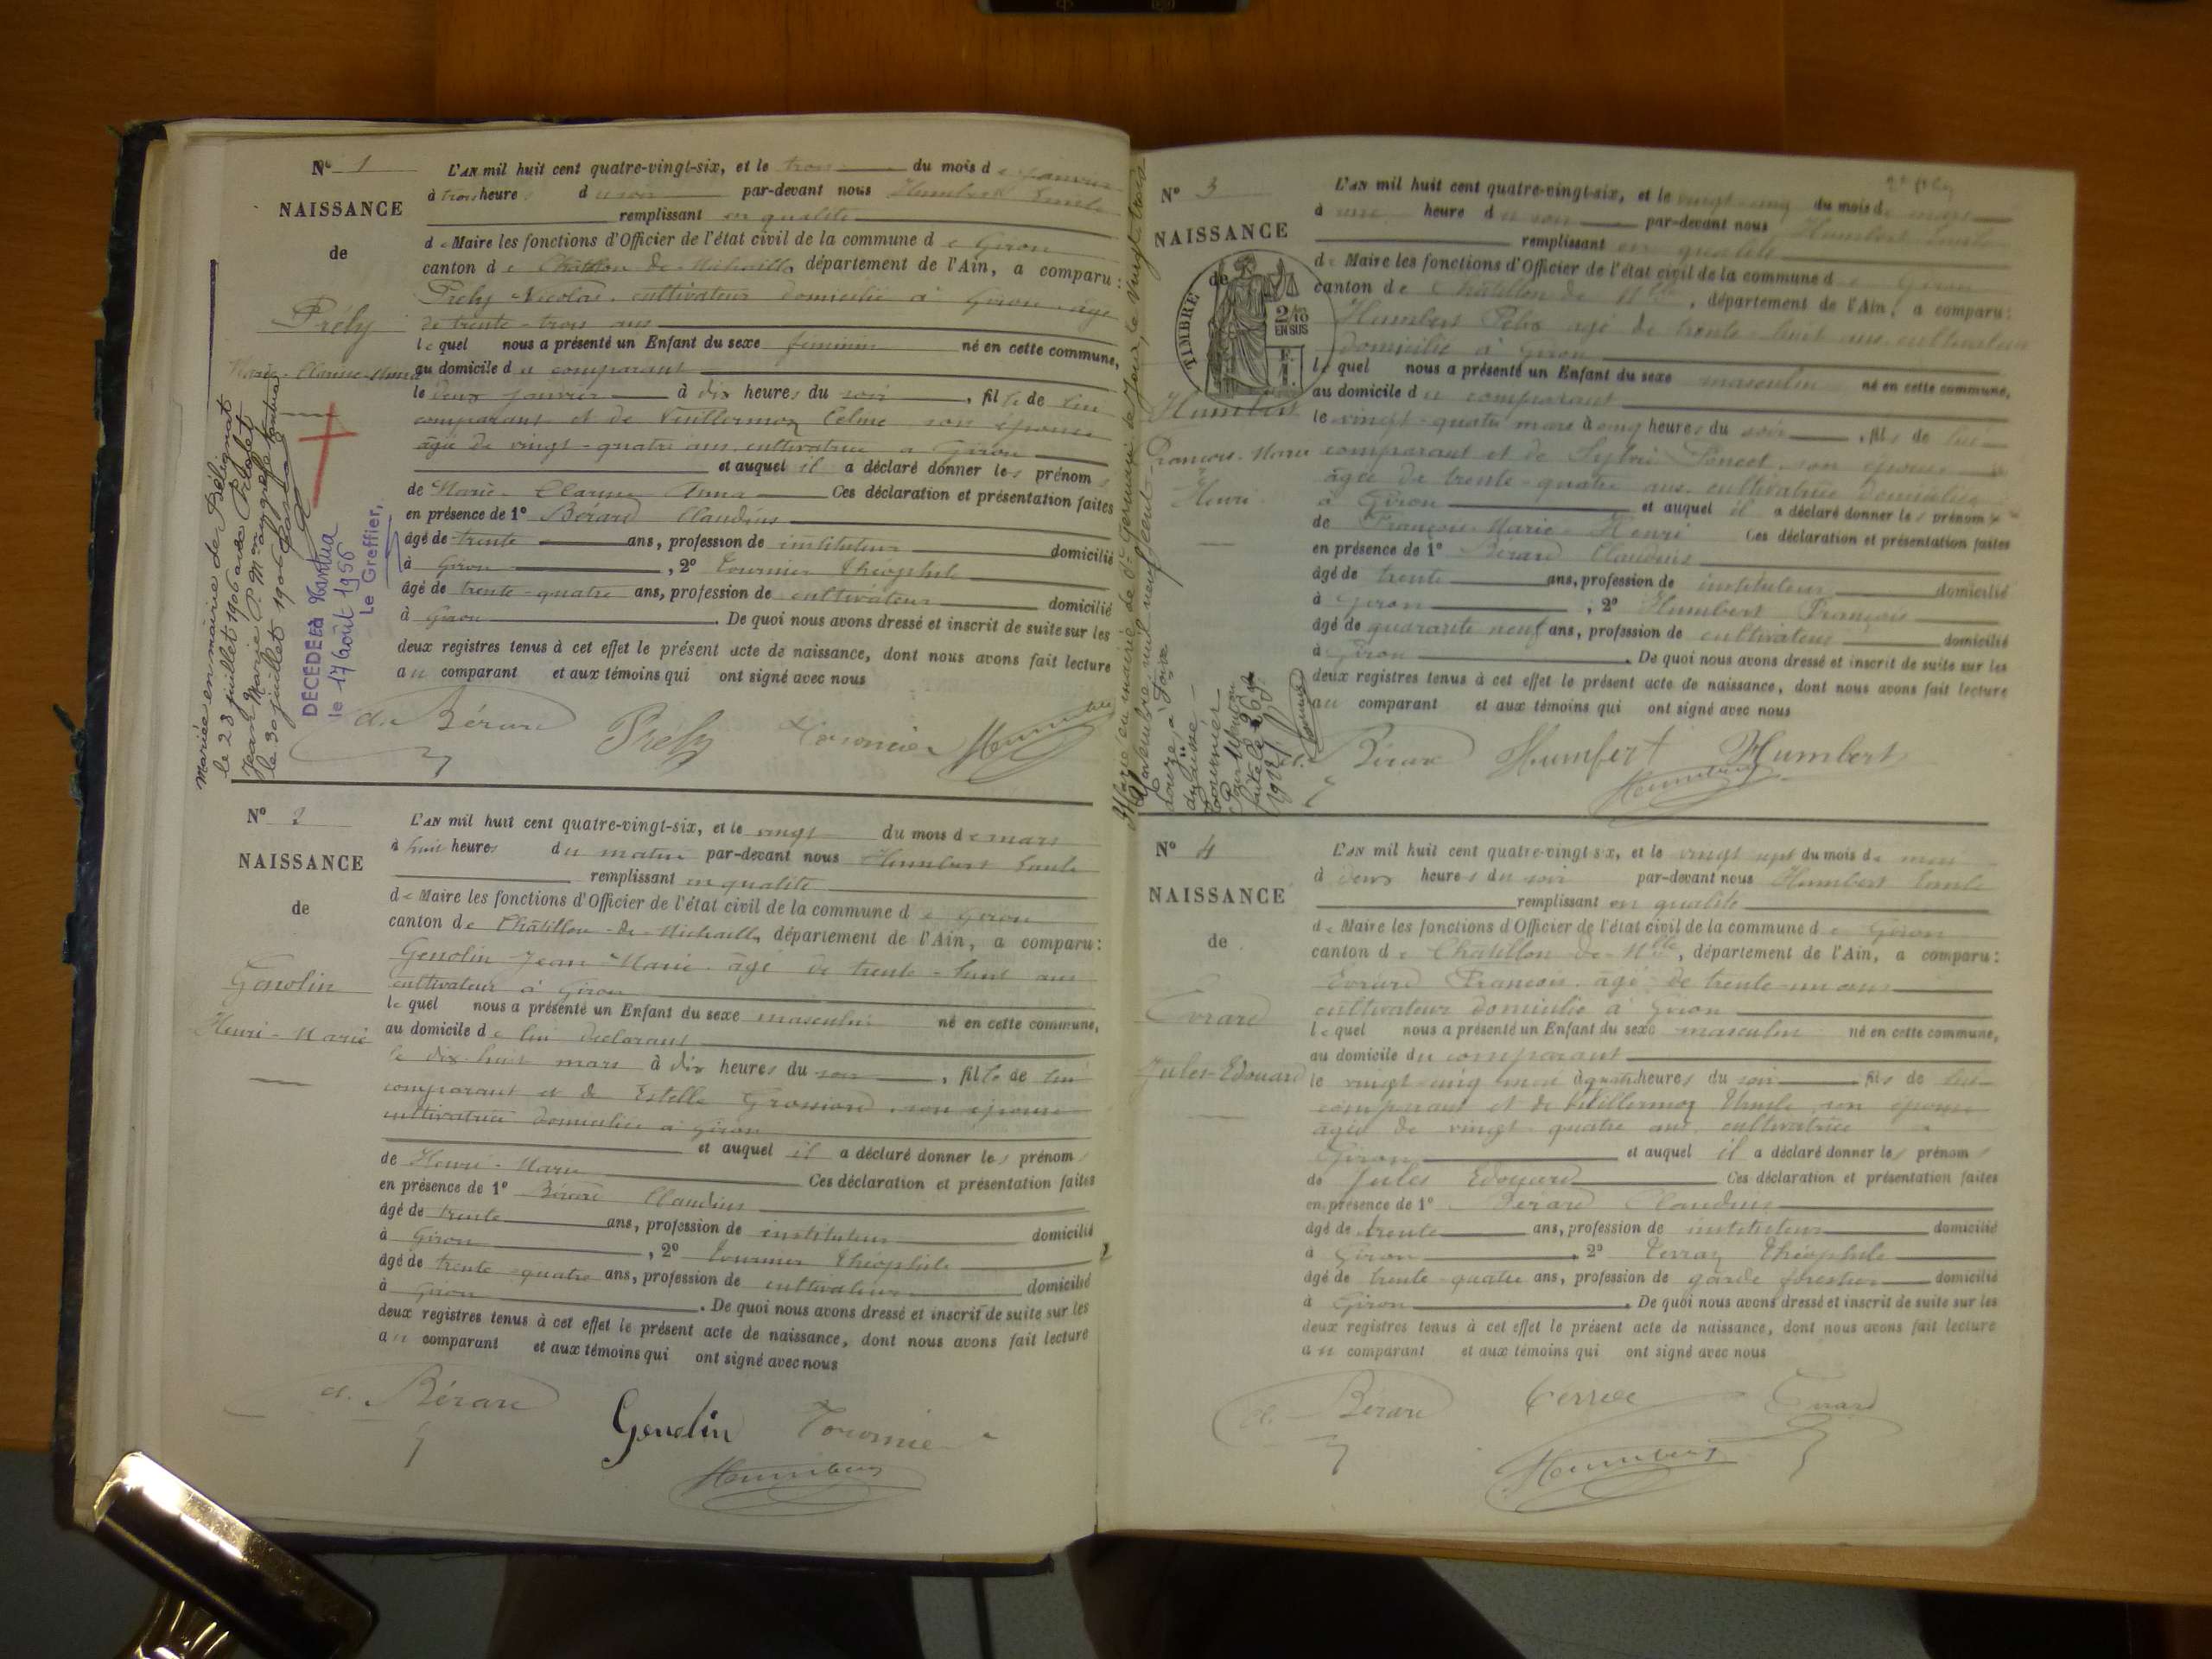 N° 1
NAISSANCE
de
Prély
Marie-Clarisse-Anna
L'AN mil huit cent quatre-vingt-six, et le trois du mois de janvier
à trois heures du soir par-devant nous Humbert Emile
remplissant en qualité
de Maire les fonctions d'Officier de l'état civil de la commune de Giron
canton de Châtillon de Michaille, département de l'Ain, a comparu :
Prély Nicolas, cultivateur domicilié à Giron, âgé
de trente-trois ans
lequel nous a présenté un Enfant du sexe féminin né en cette commune,
au domicile du comparant
le deux janvier à dix heures du soir, fille de lui
comparant et de Vuillermoz Celine son épouse
âgée de vingt-quatre ans, cultivatrice à Giron
et auquel il a déclaré donner les prénoms
de Marie-Clarisse Anna Ces déclaration et présentation faites
en présence de 1° Bérard Claudius
âgé de trente ans, profession de instituteur domicilié
à Giron, 2° Tournier Théophile
âgé de trente-quatre ans, profession de cultivateur domicilié
à Giron. De quoi nous avons dressé et inscrit de suite sur les
deux registres tenus à cet effet le présent acte de naissance, dont nous avons fait lecture
au comparant et aux témoins qui ont signé avec nous
cl. Bérard Prély Tournier Humbert
Mariée en mairie de Bélignat
le 28 juillet 1906 avec
Jean Marie
le 30 juillet 1906
DÉCÉDÉE à Nantua
le 17 août 1956
Le Greffier,
N° 2
NAISSANCE
de
Genolin
Henri-Marie
L'AN mil huit cent quatre-vingt-six, et le vingt du mois de mars
à huit heures du matin par-devant nous Humbert Emile
remplissant en qualité
de Maire les fonctions d'Officier de l'état civil de la commune de Giron
canton de Châtillon-de-Michaille, département de l'Ain, a comparu :
Genolin Jean-Marie âgé de trente-huit ans
cultivateur à Giron
lequel nous a présenté un Enfant du sexe masculin né en cette commune,
au domicile de lui déclarant
le dix-huit mars à dix heures du soir, fils de lui
comparant et de Estelle Grossiord, son épouse
cultivatrice domiciliée à Giron
et auquel il a déclaré donner les prénoms
de Henri-Marie Ces déclaration et présentation faites
en présence de 1° Bérard Claudius
âgé de trente ans, profession de instituteur domicilié
à Giron, 2° Tournier Théophile
âgé de trente-quatre ans, profession de cultivateur domicilié
à Giron. De quoi nous avons dressé et inscrit de suite sur les
deux registres tenus à cet effet le présent acte de naissance, dont nous avons fait lecture
au comparant et aux témoins qui ont signé avec nous
cl. Bérard Genolin Tournier
Humbert
N° 3
NAISSANCE
de
TIMBRE
2/10
EN SUS
Humbert
François-Marie
Henri
L'AN mil huit cent quatre-vingt-six, et le vingt-cinq du mois de mars
à une heure du soir par-devant nous Humbert Emile
remplissant en qualité
de Maire les fonctions d'Officier de l'état civil de la commune de Giron
canton de Châtillon de Mlle, département de l'Ain, a comparu :
Humbert Félix âgé de trente-huit ans cultivateur
domicilié à Giron
lequel nous a présenté un Enfant du sexe masculin né en cette commune,
au domicile du comparant
le vingt-quatre mars à cinq heures du soir, fils de lui
comparant et de Sylvie Poncet, son épouse
âgée de trente-quatre ans, cultivatrice domiciliée
à Giron et auquel il a déclaré donner les prénoms
de François-Marie-Henri Ces déclaration et présentation faites
en présence de 1° Bérard Claudius
âgé de trente ans, profession de instituteur domicilié
à Giron, 2° Humbert François
âgé de quarante neuf ans, profession de cultivateur domicilié
à Giron. De quoi nous avons dressé et inscrit de suite sur les
deux registres tenus à cet effet le présent acte de naissance, dont nous avons fait lecture
au comparant et aux témoins qui ont signé avec nous
cl. Bérard Humbert Humbert
Humbert
Marié en mairie de St Germain de Joux, le vingt-trois
Novembre mil neuf cent
douze, à
Tournier
N° 4
NAISSANCE
de
Evrard
Jules-Edouard
L'AN mil huit cent quatre-vingt-six, et le vingt-sept du mois de mai
à deux heures du soir par-devant nous Humbert Emile
remplissant en qualité
de Maire les fonctions d'Officier de l'état civil de la commune de Giron
canton de Châtillon-de-Mlle, département de l'Ain, a comparu :
Evrard François âgé de trente-un ans
cultivateur domicilié à Giron
lequel nous a présenté un Enfant du sexe masculin né en cette commune,
au domicile du comparant
le vingt-cinq mai à quatre heures du soir fils de lui
comparant et de Vuillermoz son épouse
âgée de vingt-quatre ans, cultivatrice
Giron et auquel il a déclaré donner les prénoms
de Jules Edouard Ces déclaration et présentation faites
en présence de 1° Bérard Claudius
âgé de trente ans, profession de instituteur domicilié
à Giron 2° Terraz Théophile
âgé de trente-quatre ans, profession de garde forestier domicilié
à Giron. De quoi nous avons dressé et inscrit de suite sur les
deux registres tenus à cet effet le présent acte de naissance, dont nous avons fait lecture
au comparant et aux témoins qui ont signé avec nous
cl. Bérard Evrard
Humbert